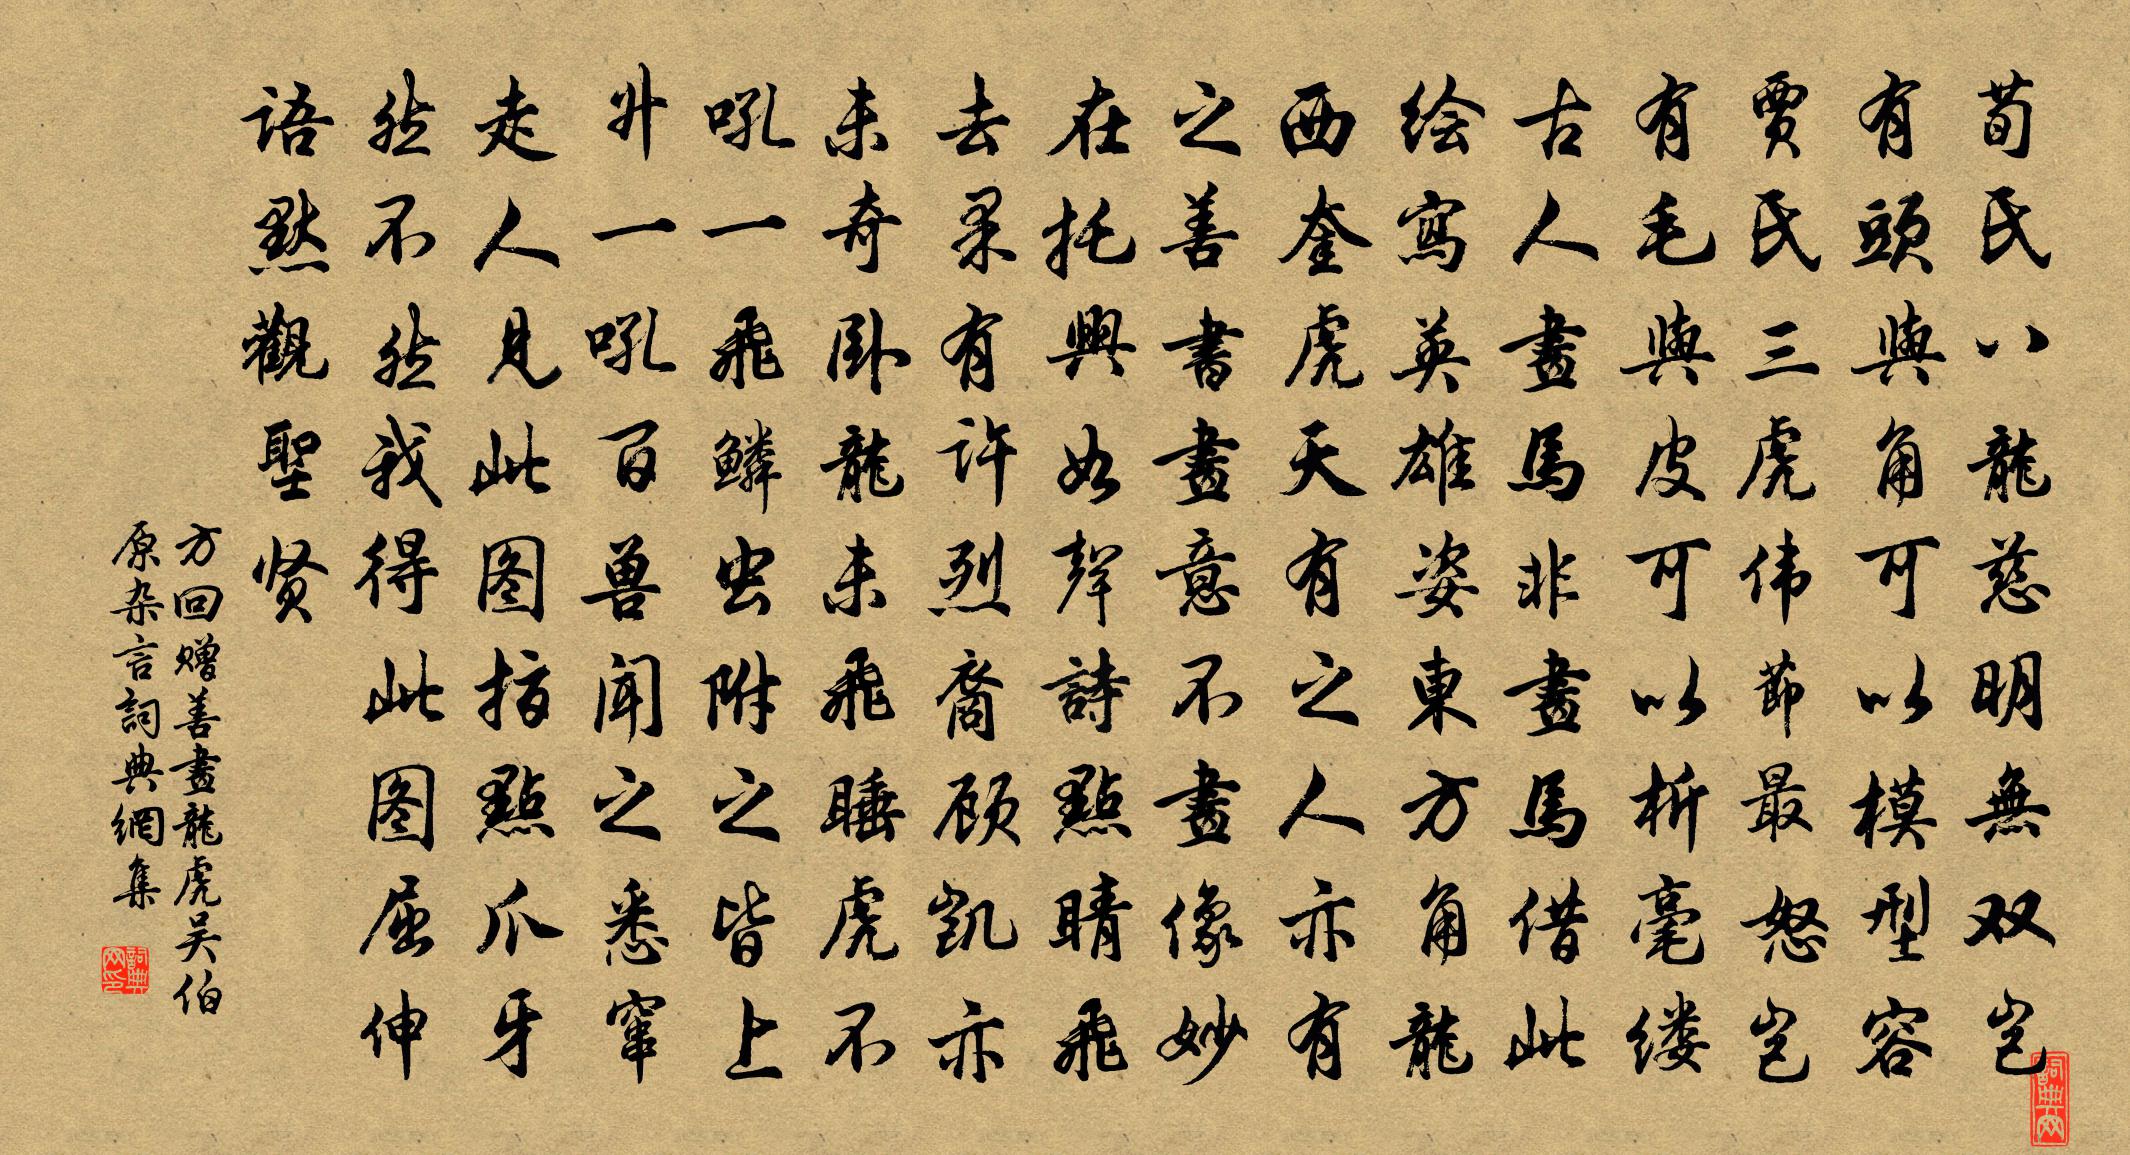 荀氏八龍慈明無双岂
有頭與角可以模型容
贾氏三虎伟節最怒岂
有毛與皮可以析毫缕
古人畫馬非畫馬借此
绘寫英雄姿東方角龍
西奎虎天有之人亦有
之善書畫意不畫像妙
在托興如聲詩點睛飛
去果有许烈裔顾凯亦
未奇卧龍未飛睡虎不
吼一飛鳞虫附之皆上
升一吼百兽闻之悉窜
走人見此图指點爪牙
然不然我得此图屈伸
語默觀聖贤
方回赠善畫龍虎吴伯
原杂言詞典網集
詞典网
詞典网印